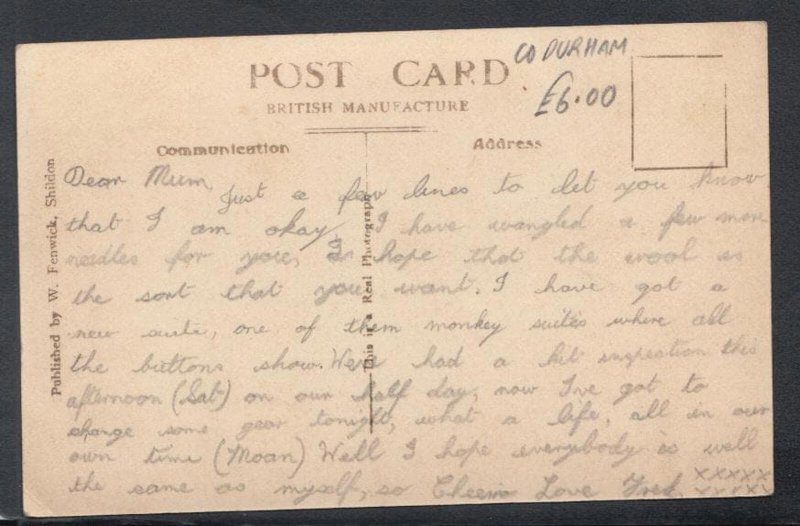 CO DURHAM
£6.00
POST CARD
BRITISH MANUFACTURE
Communication
Address
Published by W. Fenwick, Shildon
This is a Real Photograph
Dear Mum
Just a few lines to let you know
that I am okay I have wangled a few more
needles for you, I hope that the wool is
the sort that you want. I have got a
new suite, one of them monkey suites where all
the buttons show. Weve had a kit inspection this
afternoon (Sat) on our half day, now I've got to
change some gear tonight, what a life, all in our
own time (Moan) Well I hope everybody is well
the same as myself, so Cheerio Love Fred xxxxx
xxxxx